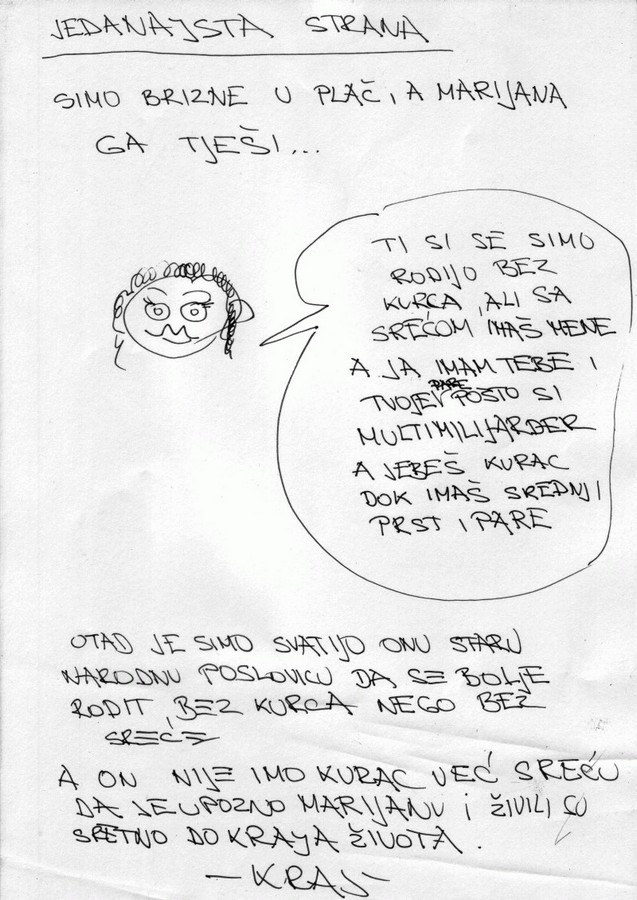 JEDANAJSTA STRANA
SIMO BRIZNE U PLAČ, A MARIJANA
GA TJEŠI...
TI SI SE SIMO
RODIJO BEZ
KURCA, ALI SA
SREĆOM IMAŠ MENE
A JA IMAM TEBE I
TVOJE PARE POŠTO SI
MULTIMILIJARDER
A JEBEŠ KURAC
DOK IMAŠ SREDNJI
PRST I PARE
OTAD JE SIMO SVATIJO ONU STARU
NARODNU POSLOVICU DA SE BOLJE
RODIT BEZ KURCA NEGO BEZ
SREĆE
A ON NIJE IMO KURAC VEĆ SREĆU
DA JE UPOZNO MARIJANU I ŽIVILI SU
SRETNO DO KRAJA ŽIVOTA.
-KRAJ-